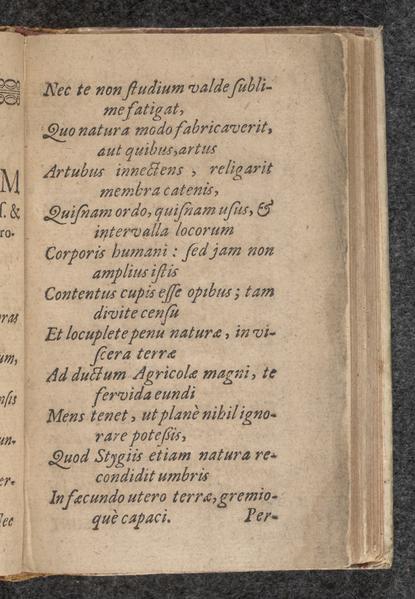 Nec te non ſtudium valde ſubli-
me fatigat,
Quo natura modo fabricaverit,
aut quibus, artus
Artubus innectens, religarit
membra catenis,
Quiſnam ordo, quiſnam uſus, &
intervalla locorum
Corporis humani : ſed jam non
amplius iſtis
Contentus cupis eſſe opibus ; tam
divite cenſu
Et locuplete penu naturæ, in vi-
ſcera terræ
Ad ductum Agricolæ magni, te
fervida eundi
Mens tenet, ut planè nihil igno-
rare poteſsis,
Quod Stygiis etiam natura re-
condidit umbris
In fæcundo utero terræ, gremio-
què capaci. Per-
M
ſ. &
ro-
um,
nſis
un-
er-